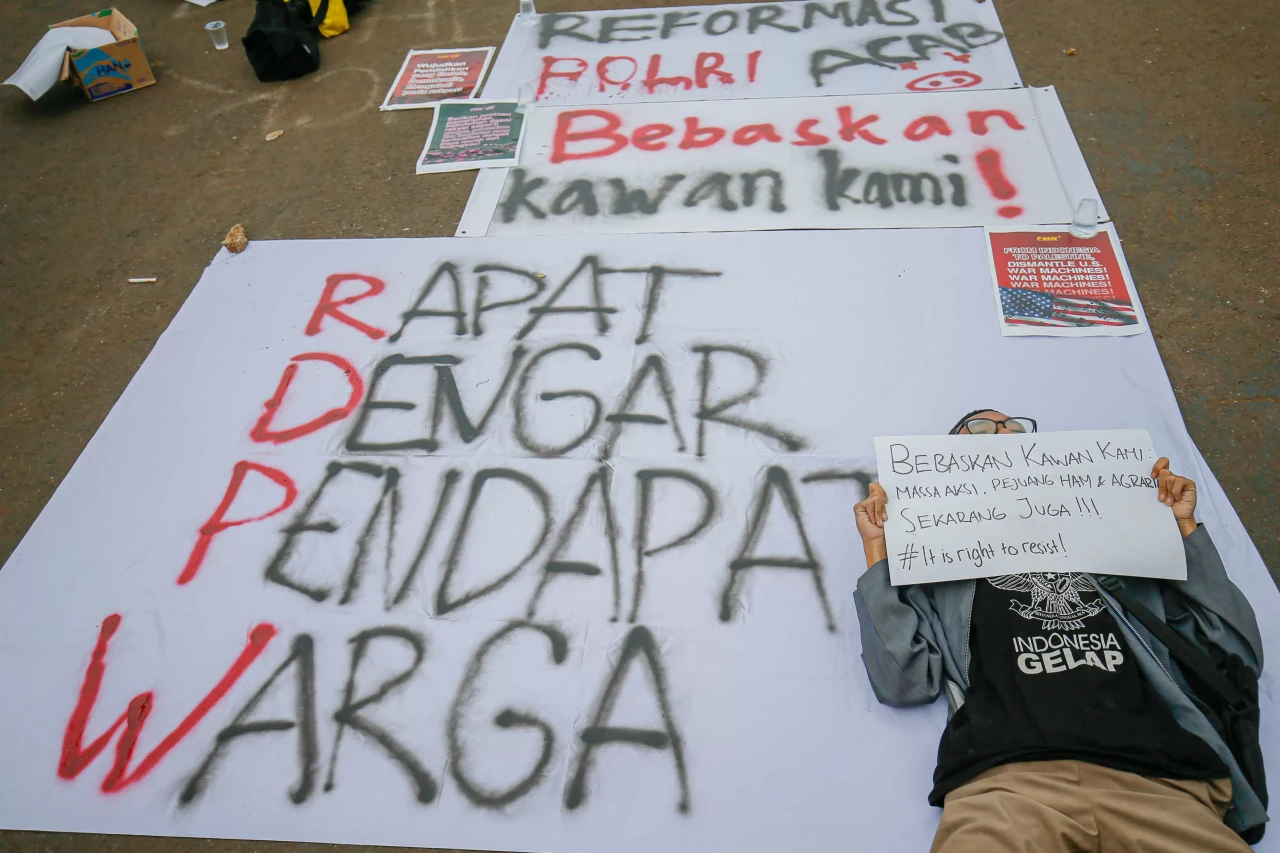 REFORMASI
POLRI ACAB
Bebaskan
kawan kami!
Wujudkan
Pendidikan
FMN
FROM INDONESIA
TO PALESTINE,
DISMANTLE U.S.
WAR MACHINES!
WAR MACHINES!
WAR MACHINES!
MACHINES!
RAPAT
DENGAR
PENDAPAT
WARGA
BEBASKAN KAWAN KAMI:
MASSA AKSI, PEJUANG HAM & AGRARI
SEKARANG JUGA!!!
#It is right to resist!
INDONESIA
GELAP